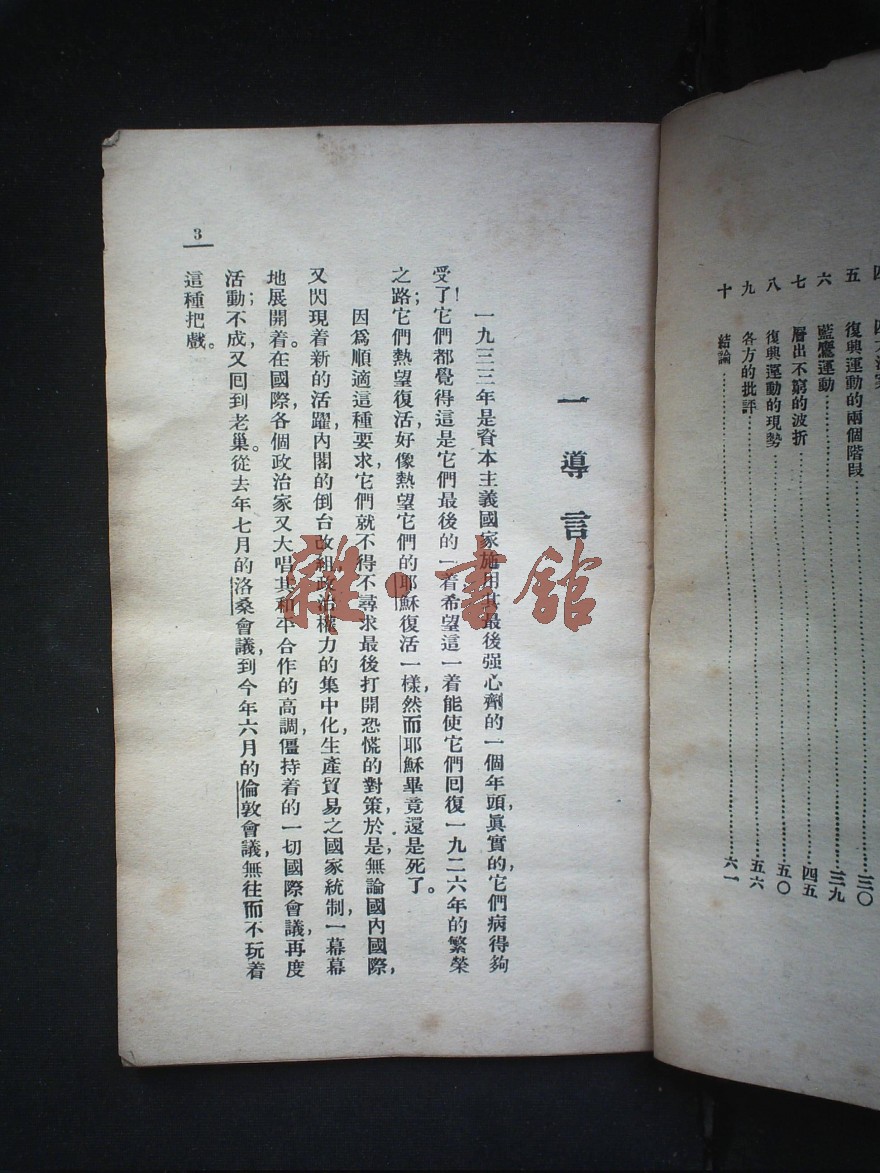 四
五　復興運動的兩個階段……三〇
六　藍鷹運動……三九
七　層出不窮的波折……四五
八　復興運動的現勢……五〇
九　各方的批評……五六
十　結論……六一
一　導言
一九三三年是資本主義國家施用其最後强心劑的一個年頭，眞實的，它們病得夠
受了！它們都覺得這是它們最後的一着希望這一着能使它們囘復一九二六年的繁榮
之路；它們熱望復活，好像熱望它們的耶穌復活一樣，然而耶穌畢竟還是死了。
因爲順適這種要求，它們就不得不尋求最後打開恐慌的對策，於是，無論國內國際，
又閃現着新的活躍，內閣的倒台改組，政治權力的集中化，生產貿易之國家統制，一幕幕
地展開着。在國際，各個政治家又大唱其和平合作的高調，僵持着的一切國際會議，再度
活動；不成，又囘到老巢。從去年七月的洛桑會議，到今年六月的倫敦會議，無往而不玩着
這種把戲。
3
雜·書館